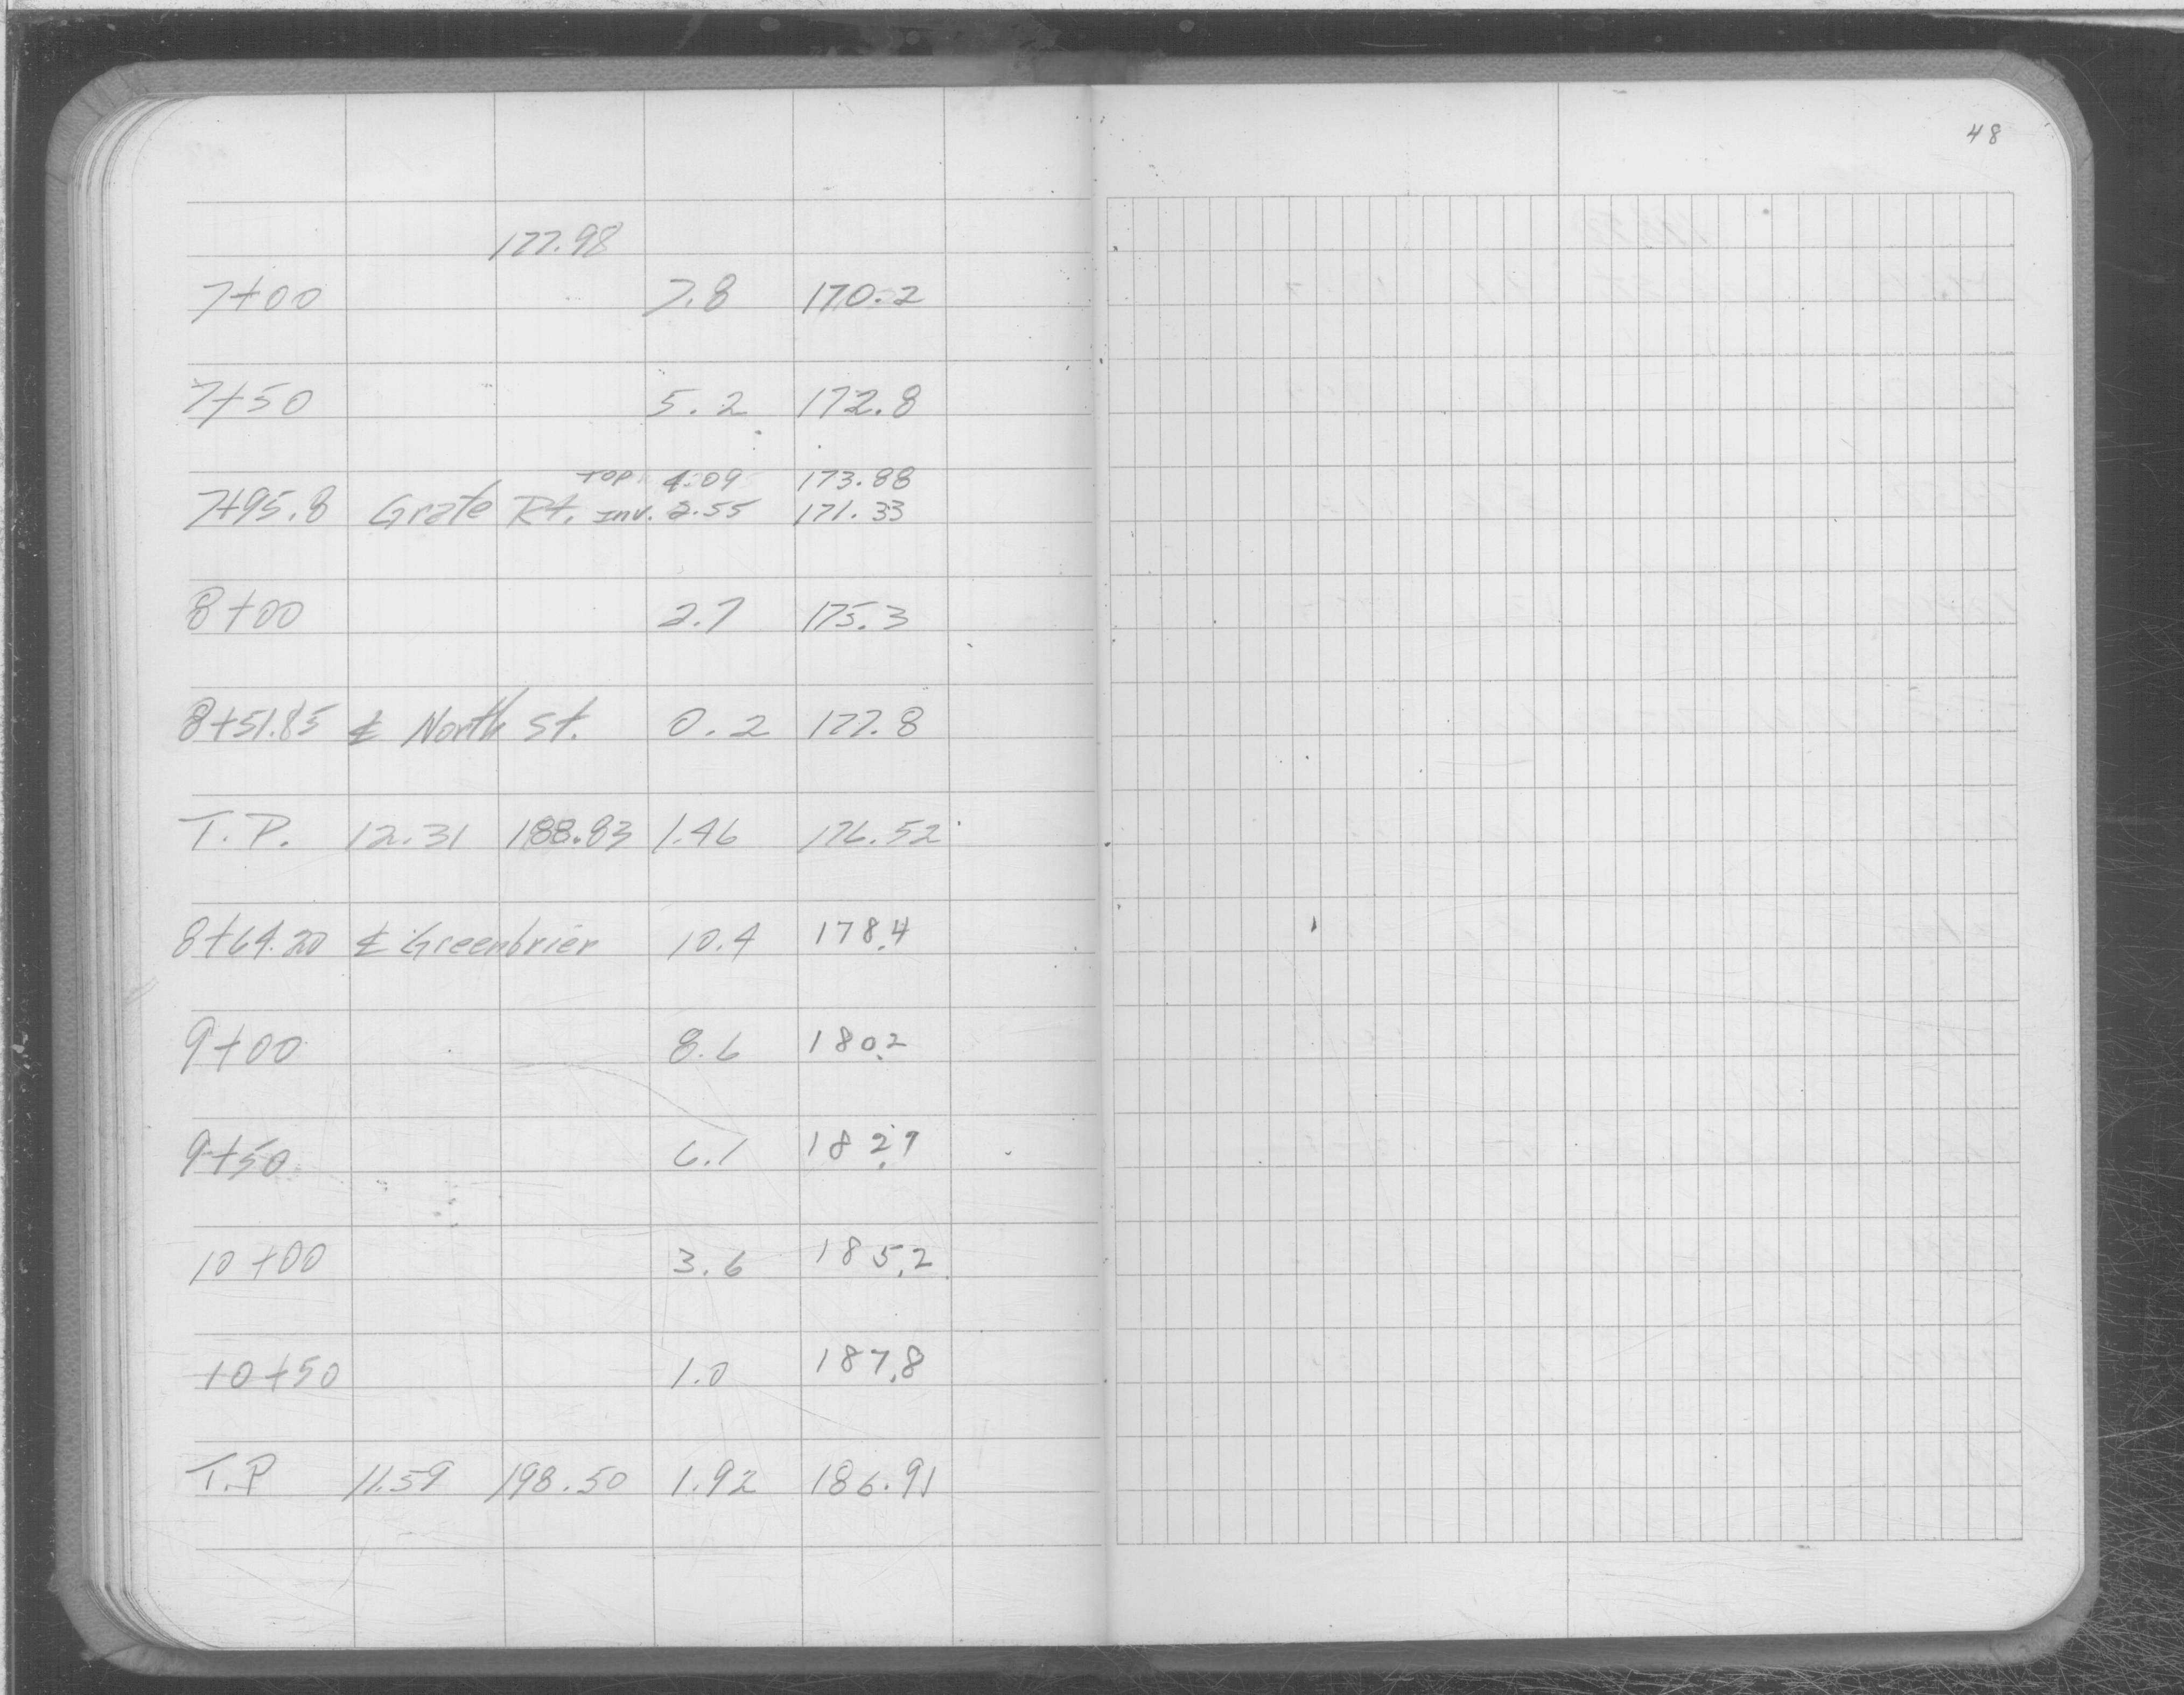 48
177.98
7+00 7.8 170.2
7+50 5.2 172.8
TOP 4.09 173.88
7+95.8 Grate Rt. Inv. 2.55 171.33
8+00 2.7 175.3
8+51.85 ℄ North St. 0.2 177.8
T.P. 12.31 188.83 1.46 176.52
8+64.20 ℄ Greenbrier 10.4 178.4
9+00 8.6 180.2
9+50 6.1 182.7
10+00 3.6 185.2
10+50 1.0 187.8
T.P 11.59 198.50 1.92 186.91